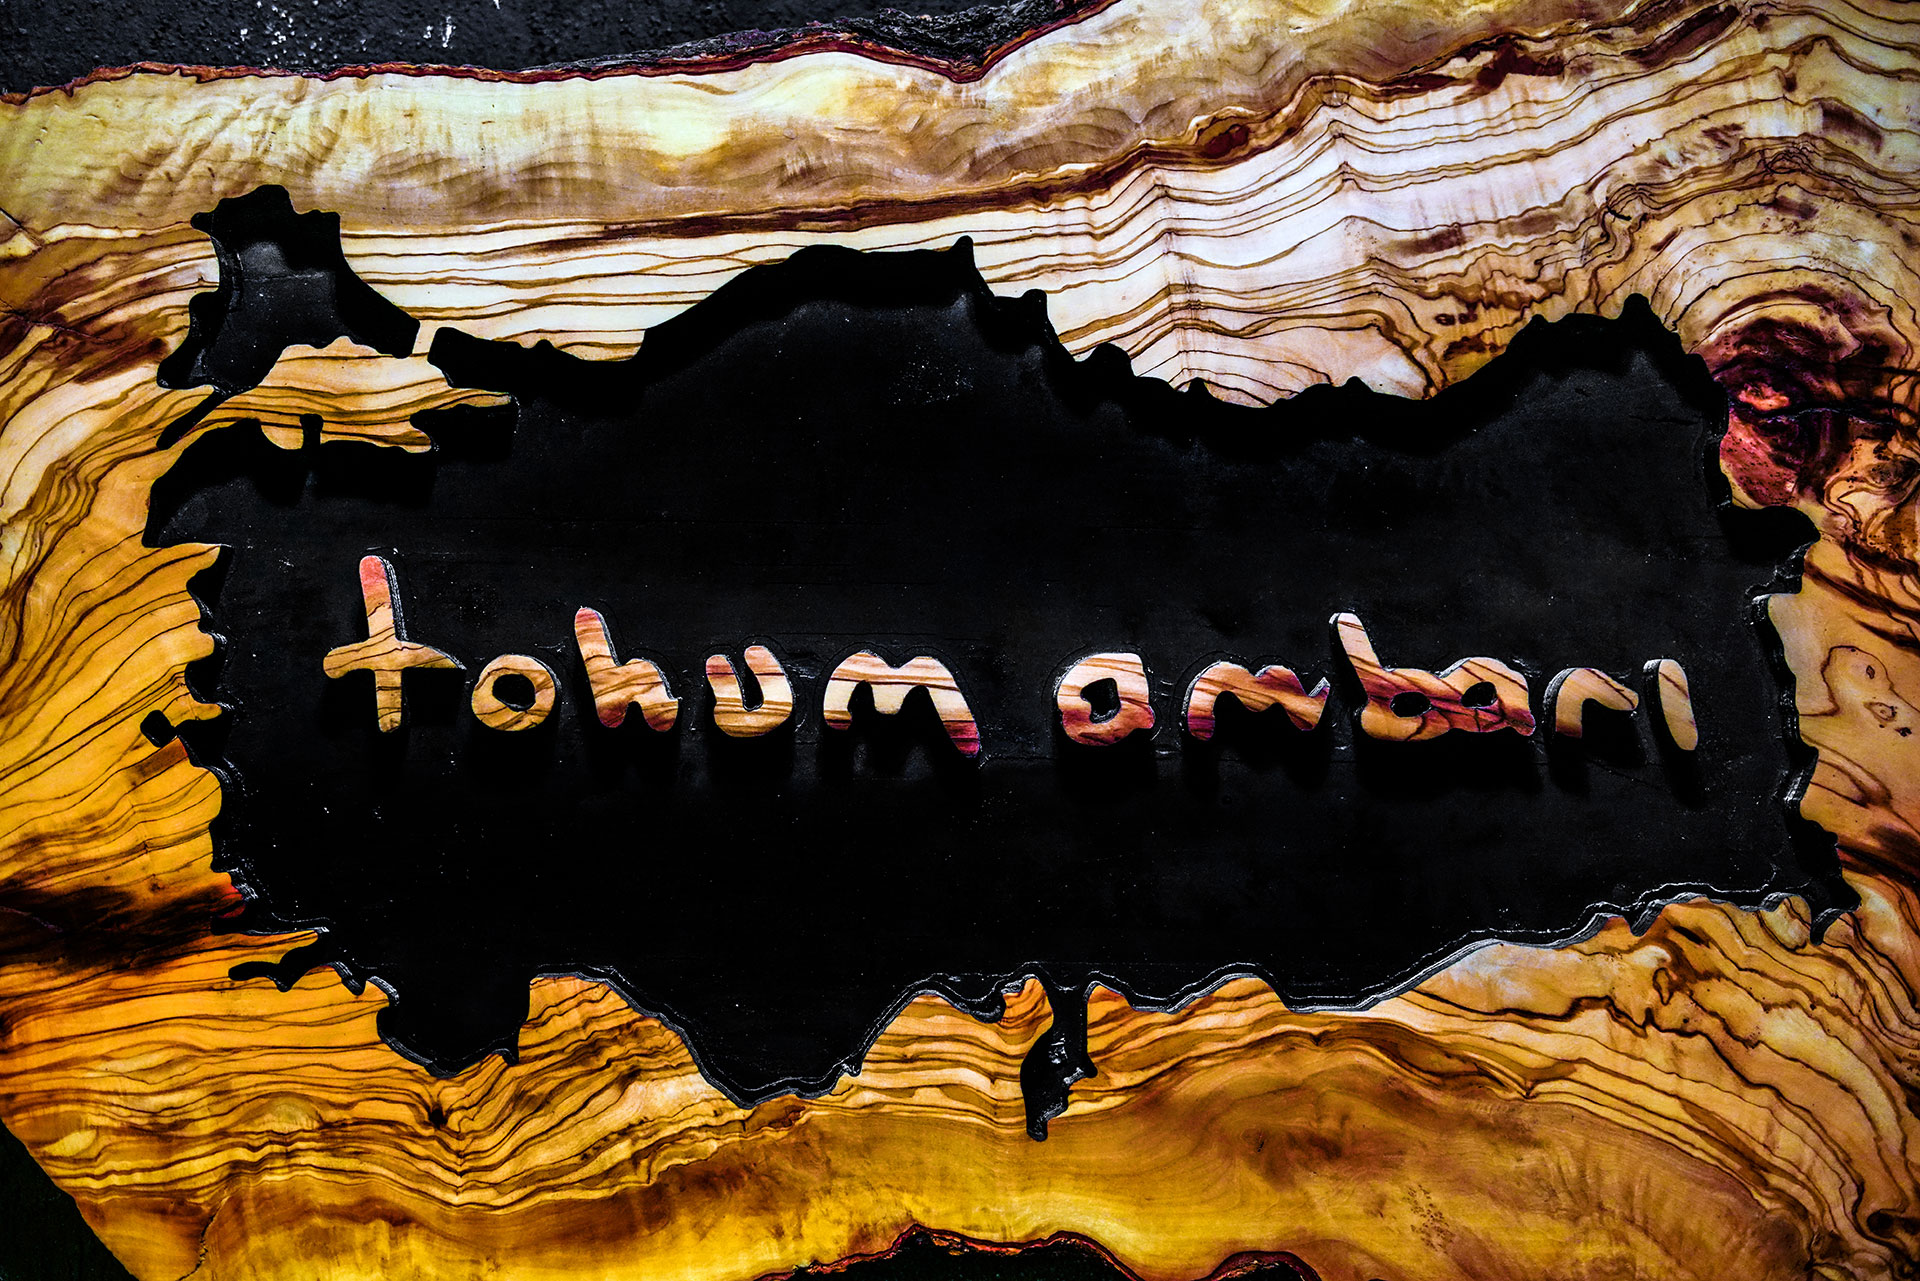 tohum ambarı